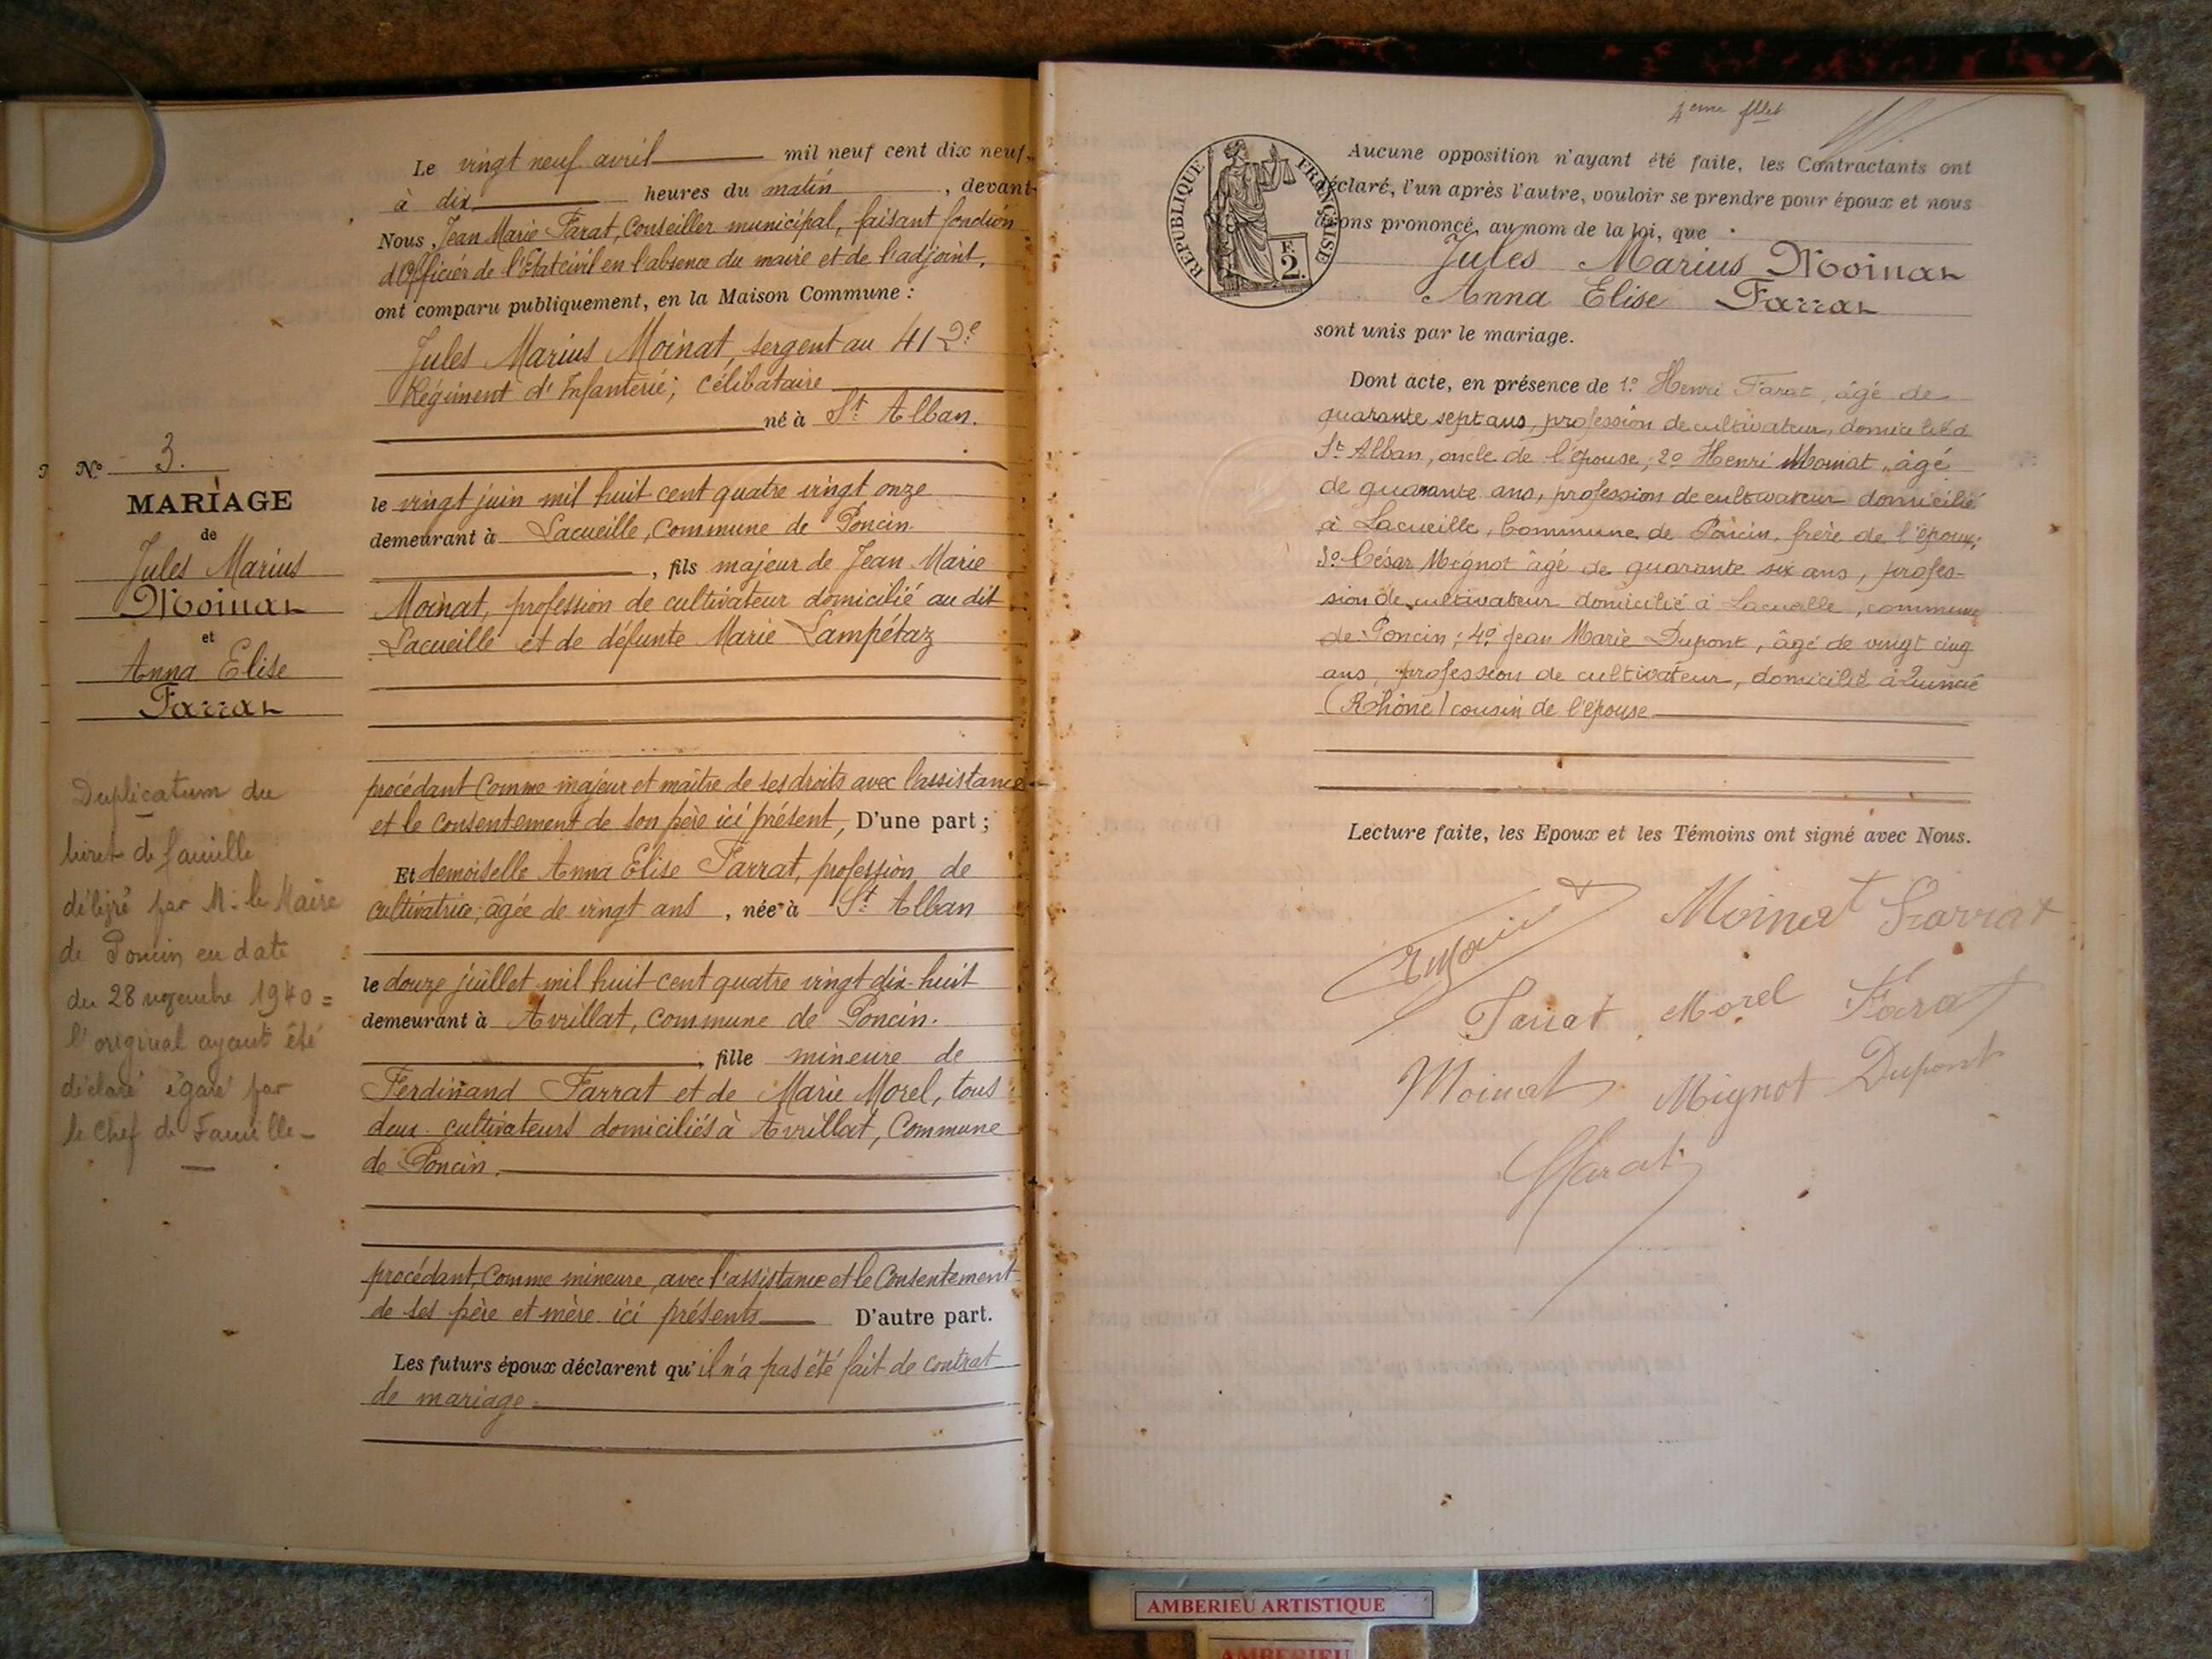 No 3.
MARIAGE
de
Jules Marius
Moinat
et
Anna Elise
Farrat
Duplicatum du
livret de famille
délivré par M. le Maire
de Poncin en date
du 28 novembre 1940 =
l'original ayant été
déclaré égaré par
le Chef de Famille -
Le vingt neuf avril mil neuf cent dix neuf,
à dix heures du matin, devant
Nous, Jean Marie Farat, Conseiller municipal, faisant fonction
d'Officier de l'Etat civil en l'absence du maire et de l'adjoint,
ont comparu publiquement, en la Maison Commune :
Jules Marius Moinat, sergent au 412e
Régiment d'Infanterie; célibataire
né à St Alban.
le vingt juin mil huit cent quatre vingt onze
demeurant à Lacueille, Commune de Poncin
, fils majeur de Jean Marie
Moinat, profession de cultivateur domicilié au dit
Lacueille et de défunte Marie Lampétaz
procédant Comme majeur et maître de ses droits avec l'assistance
et le consentement de son père ici présent, D'une part ;
Et demoiselle Anna Elise Farrat, profession de
cultivatrice, âgée de vingt ans, née à St Alban
le douze juillet mil huit cent quatre vingt dix-huit
demeurant à Avrillat, Commune de Poncin.
, fille mineure de
Ferdinand Farrat et de Marie Morel, tous
deux cultivateurs domiciliés à Avrillat, Commune
de Poncin.
procédant, Comme mineure, avec l'assistance et le Consentement
de ses père et mère ici présents D'autre part.
Les futurs époux déclarent qu'il n'a pas été fait de contrat
de mariage.
4eme fllet
RÉPUBLIQUE FRANÇAISE
E.
2.
Aucune opposition n'ayant été faite, les Contractants ont
déclaré, l'un après l'autre, vouloir se prendre pour époux et nous
avons prononcé, au nom de la loi, que
Jules Marius Moinat
Anna Elise Farrat
sont unis par le mariage.
Dont acte, en présence de 1o Henri Farat, âgé de
quarante sept ans, profession de cultivateur, domicilié à
St Alban, oncle de l'épouse; 2o Henri Moinat, âgé
de quarante ans, profession de cultivateur domicilié
à Lacueille, Commune de Poncin, frère de l'époux;
3o César Mignot âgé de quarante six ans, profes-
sion de cultivateur domicilié à Lacueille, commune
de Poncin; 4o Jean Marie Dupont, âgé de vingt cinq
ans, profession de cultivateur, domicilié à Quincié
(Rhône) cousin de l'épouse
Lecture faite, les Epoux et les Témoins ont signé avec Nous.
Moinat Farrat
Farrat Morel Farat
Moinat Mignot Dupont
Farat
AMBERIEU ARTISTIQUE
AMBERIEU